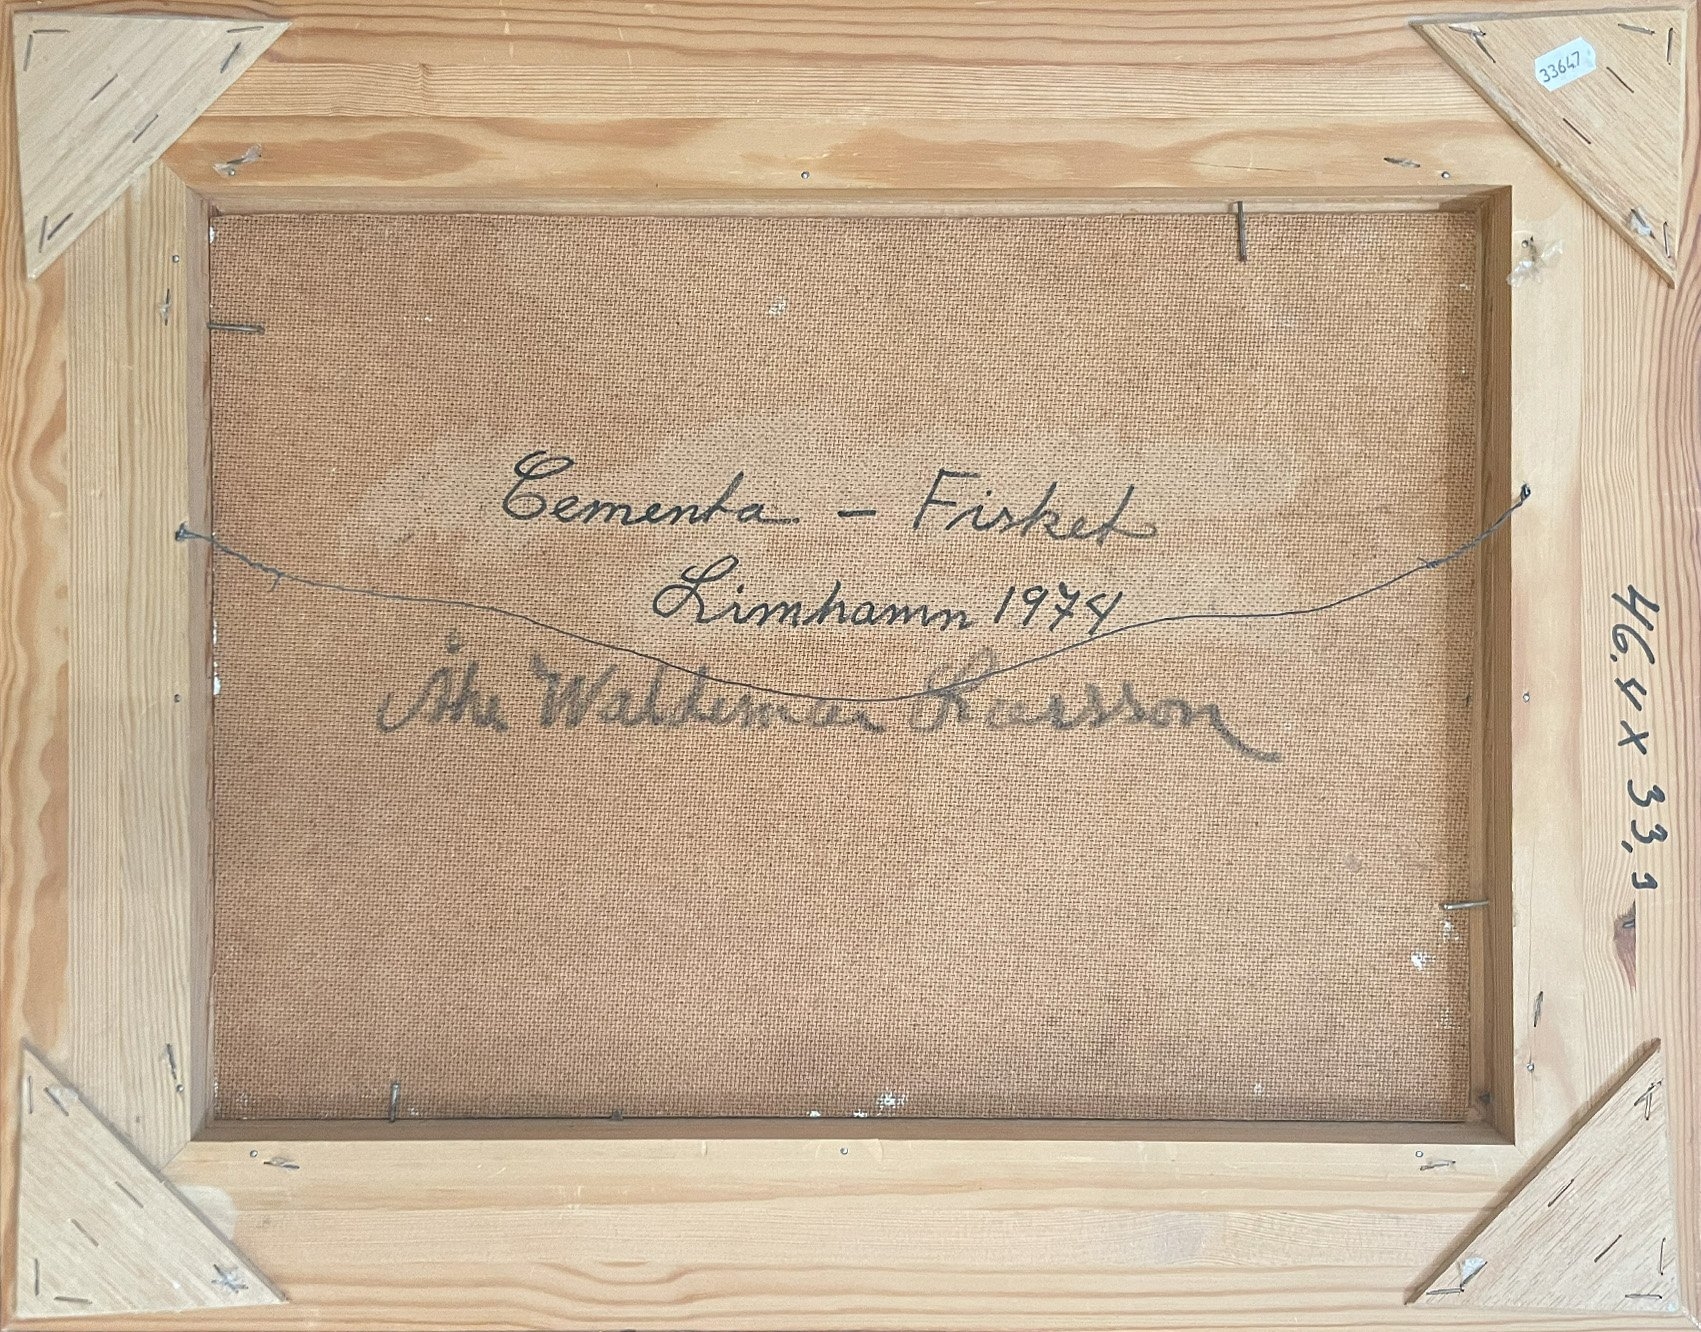 33647
Cementa – Fisket
Limhamn 1974
Åke Waldemar Larsson
46,4 x 33,3